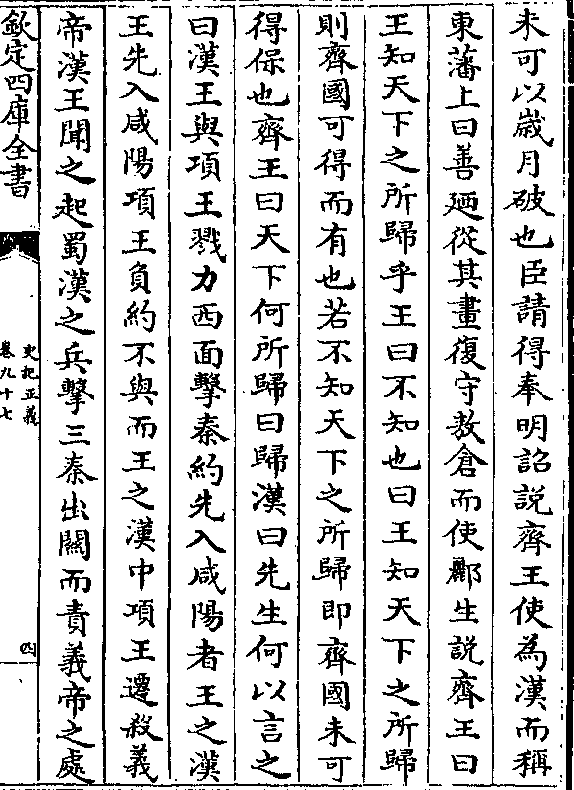 未可以嵗月破也臣請得奉明詔説齊王使為漢而稱
東藩上曰善廼從其畫復守敖倉而使酈生説齊王曰
王知天下之所歸乎王曰不知也曰王知天下之所歸
則齊國可得而有也若不知天下之所歸即齊國未可
得保也齊王曰天下何所歸曰歸漢曰先生何以言之
曰漢王與項王戮力西面擊秦約先入咸陽者王之漢
王先入咸陽項王負約不與而王之漢中項王遷殺義
帝漢王聞之起蜀漢之兵擊三秦出關而責義帝之處
欽定四庫全書
史記正義
卷九十七
四